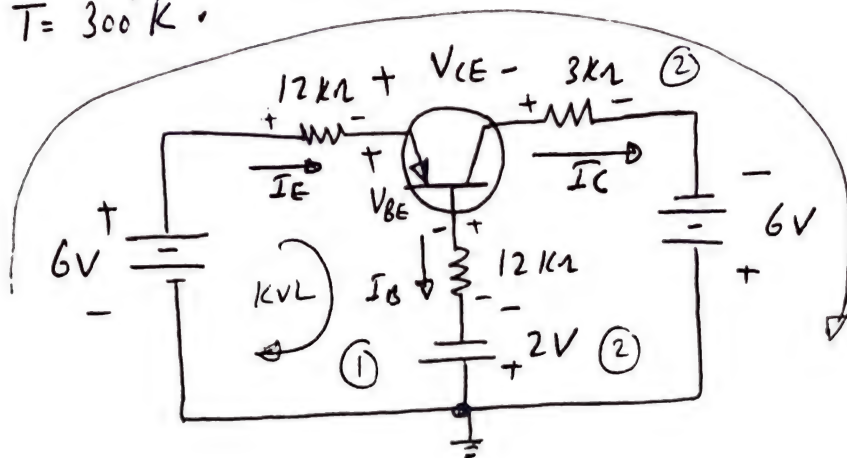 T= 300 K.
12 kΩ + VCE - 3kΩ ②
+ - + -
IE + IC
VBE
+ - + -
6V 6V
- KVL IB 12 KΩ +
- -
① + 2V ②